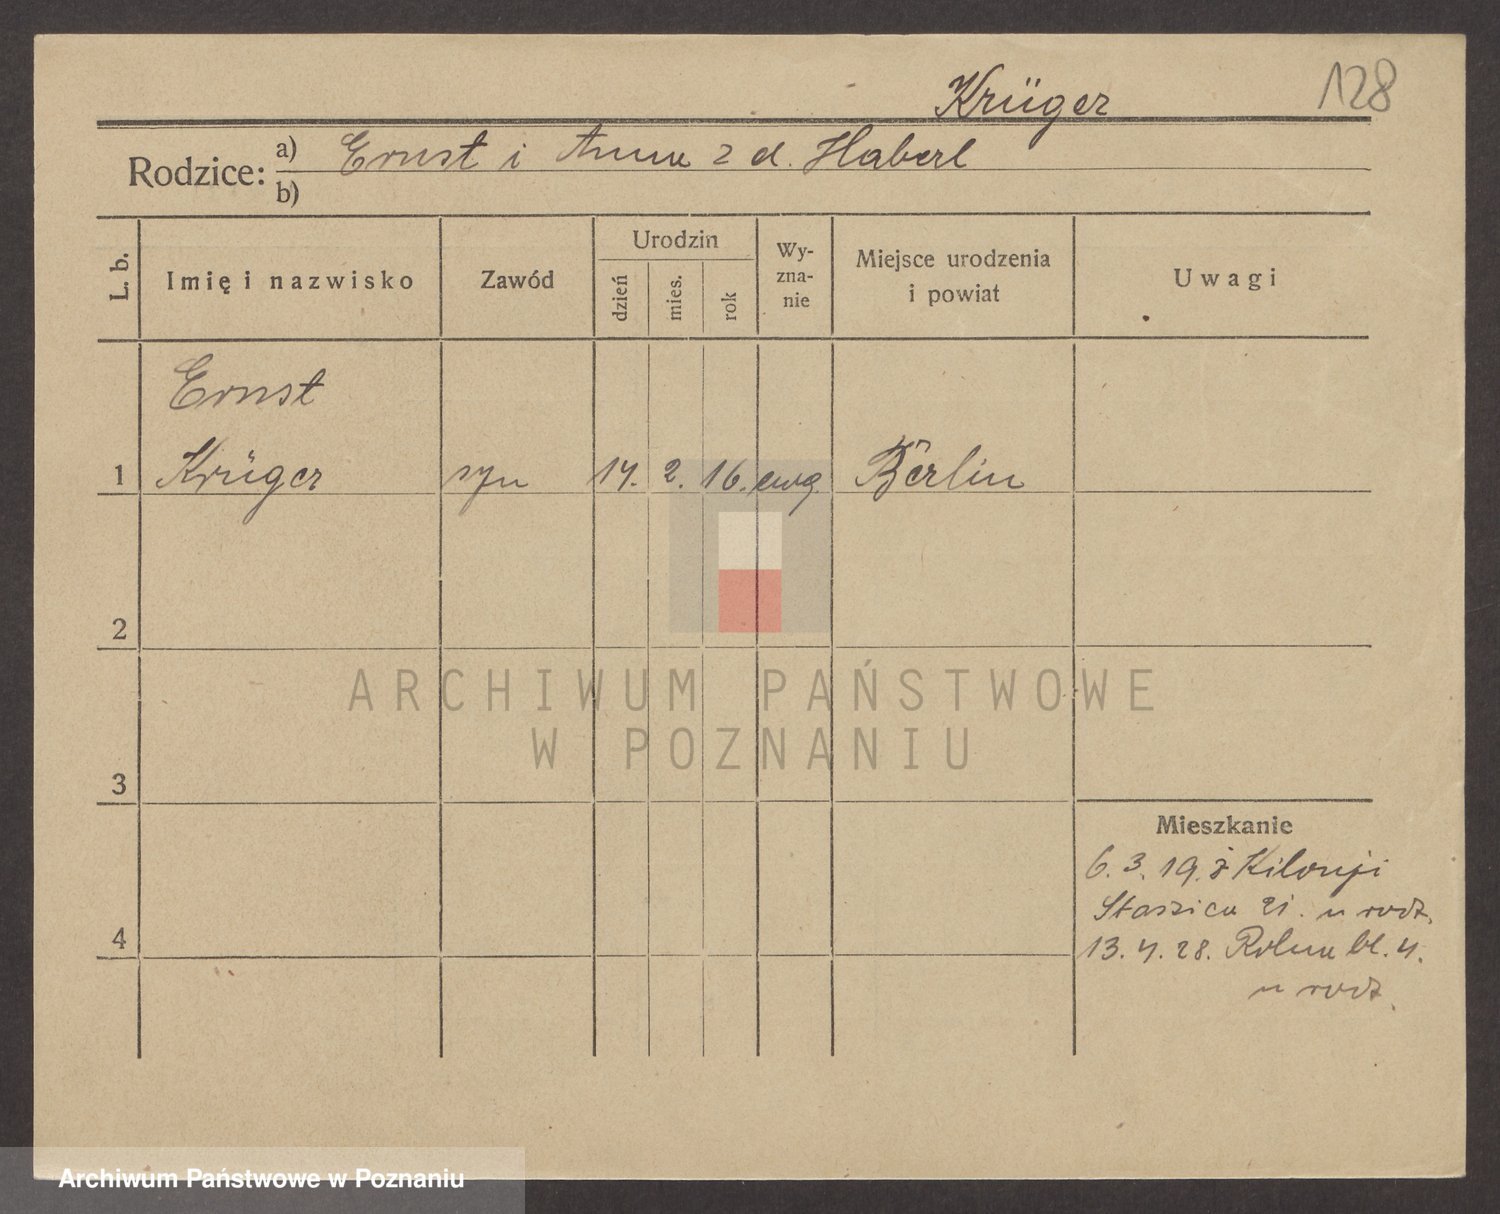 128
Krüger
Rodzice:
a) Ernst i Anna z d. Haberl
b)
L. b.
Imię i nazwisko
Zawód
Urodzin
dzień
mies.
rok
Wy-
zna-
nie
Miejsce urodzenia
i powiat
Uwagi
Ernst
1 Krüger syn 14. 2. 16. ewg. Berlin
2
3
4
Mieszkanie
6. 3. 19. z Kilonji
Staszica 21. u rodz.
13. 4. 28. Rolna bl. 4.
u rodz.
ARCHIWUM PAŃSTWOWE
W POZNANIU
Archiwum Państwowe w Poznaniu